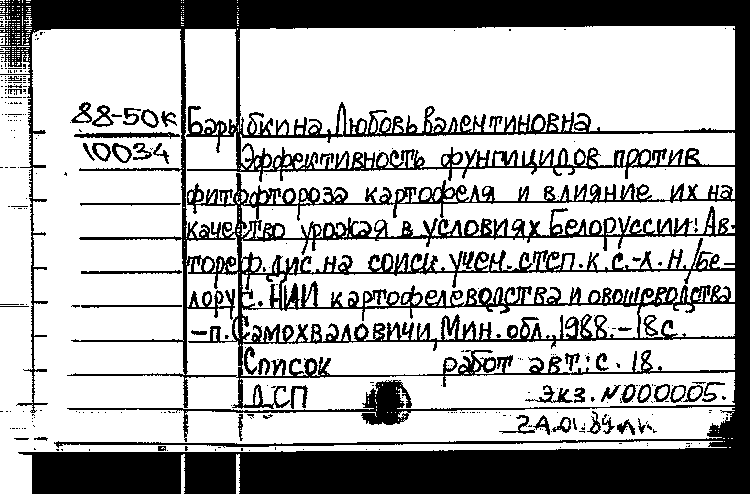 88-50к Барыбкина, Любовь Валентиновна.
10034 Эффективность фунгицидов против
фитофтороза картофеля и влияние их на
качество урожая в условиях Белоруссии: Ав-
тореф. дис. на соиск. учен. степ. к. с.-х. н. /Бе-
лорус. НИИ картофелеводства и овощеводства
–п. Самохваловичи, Мин. обл., 1988.–18с.
Список работ авт.: с. 18.
ДСП экз. N000005.
24.01.89